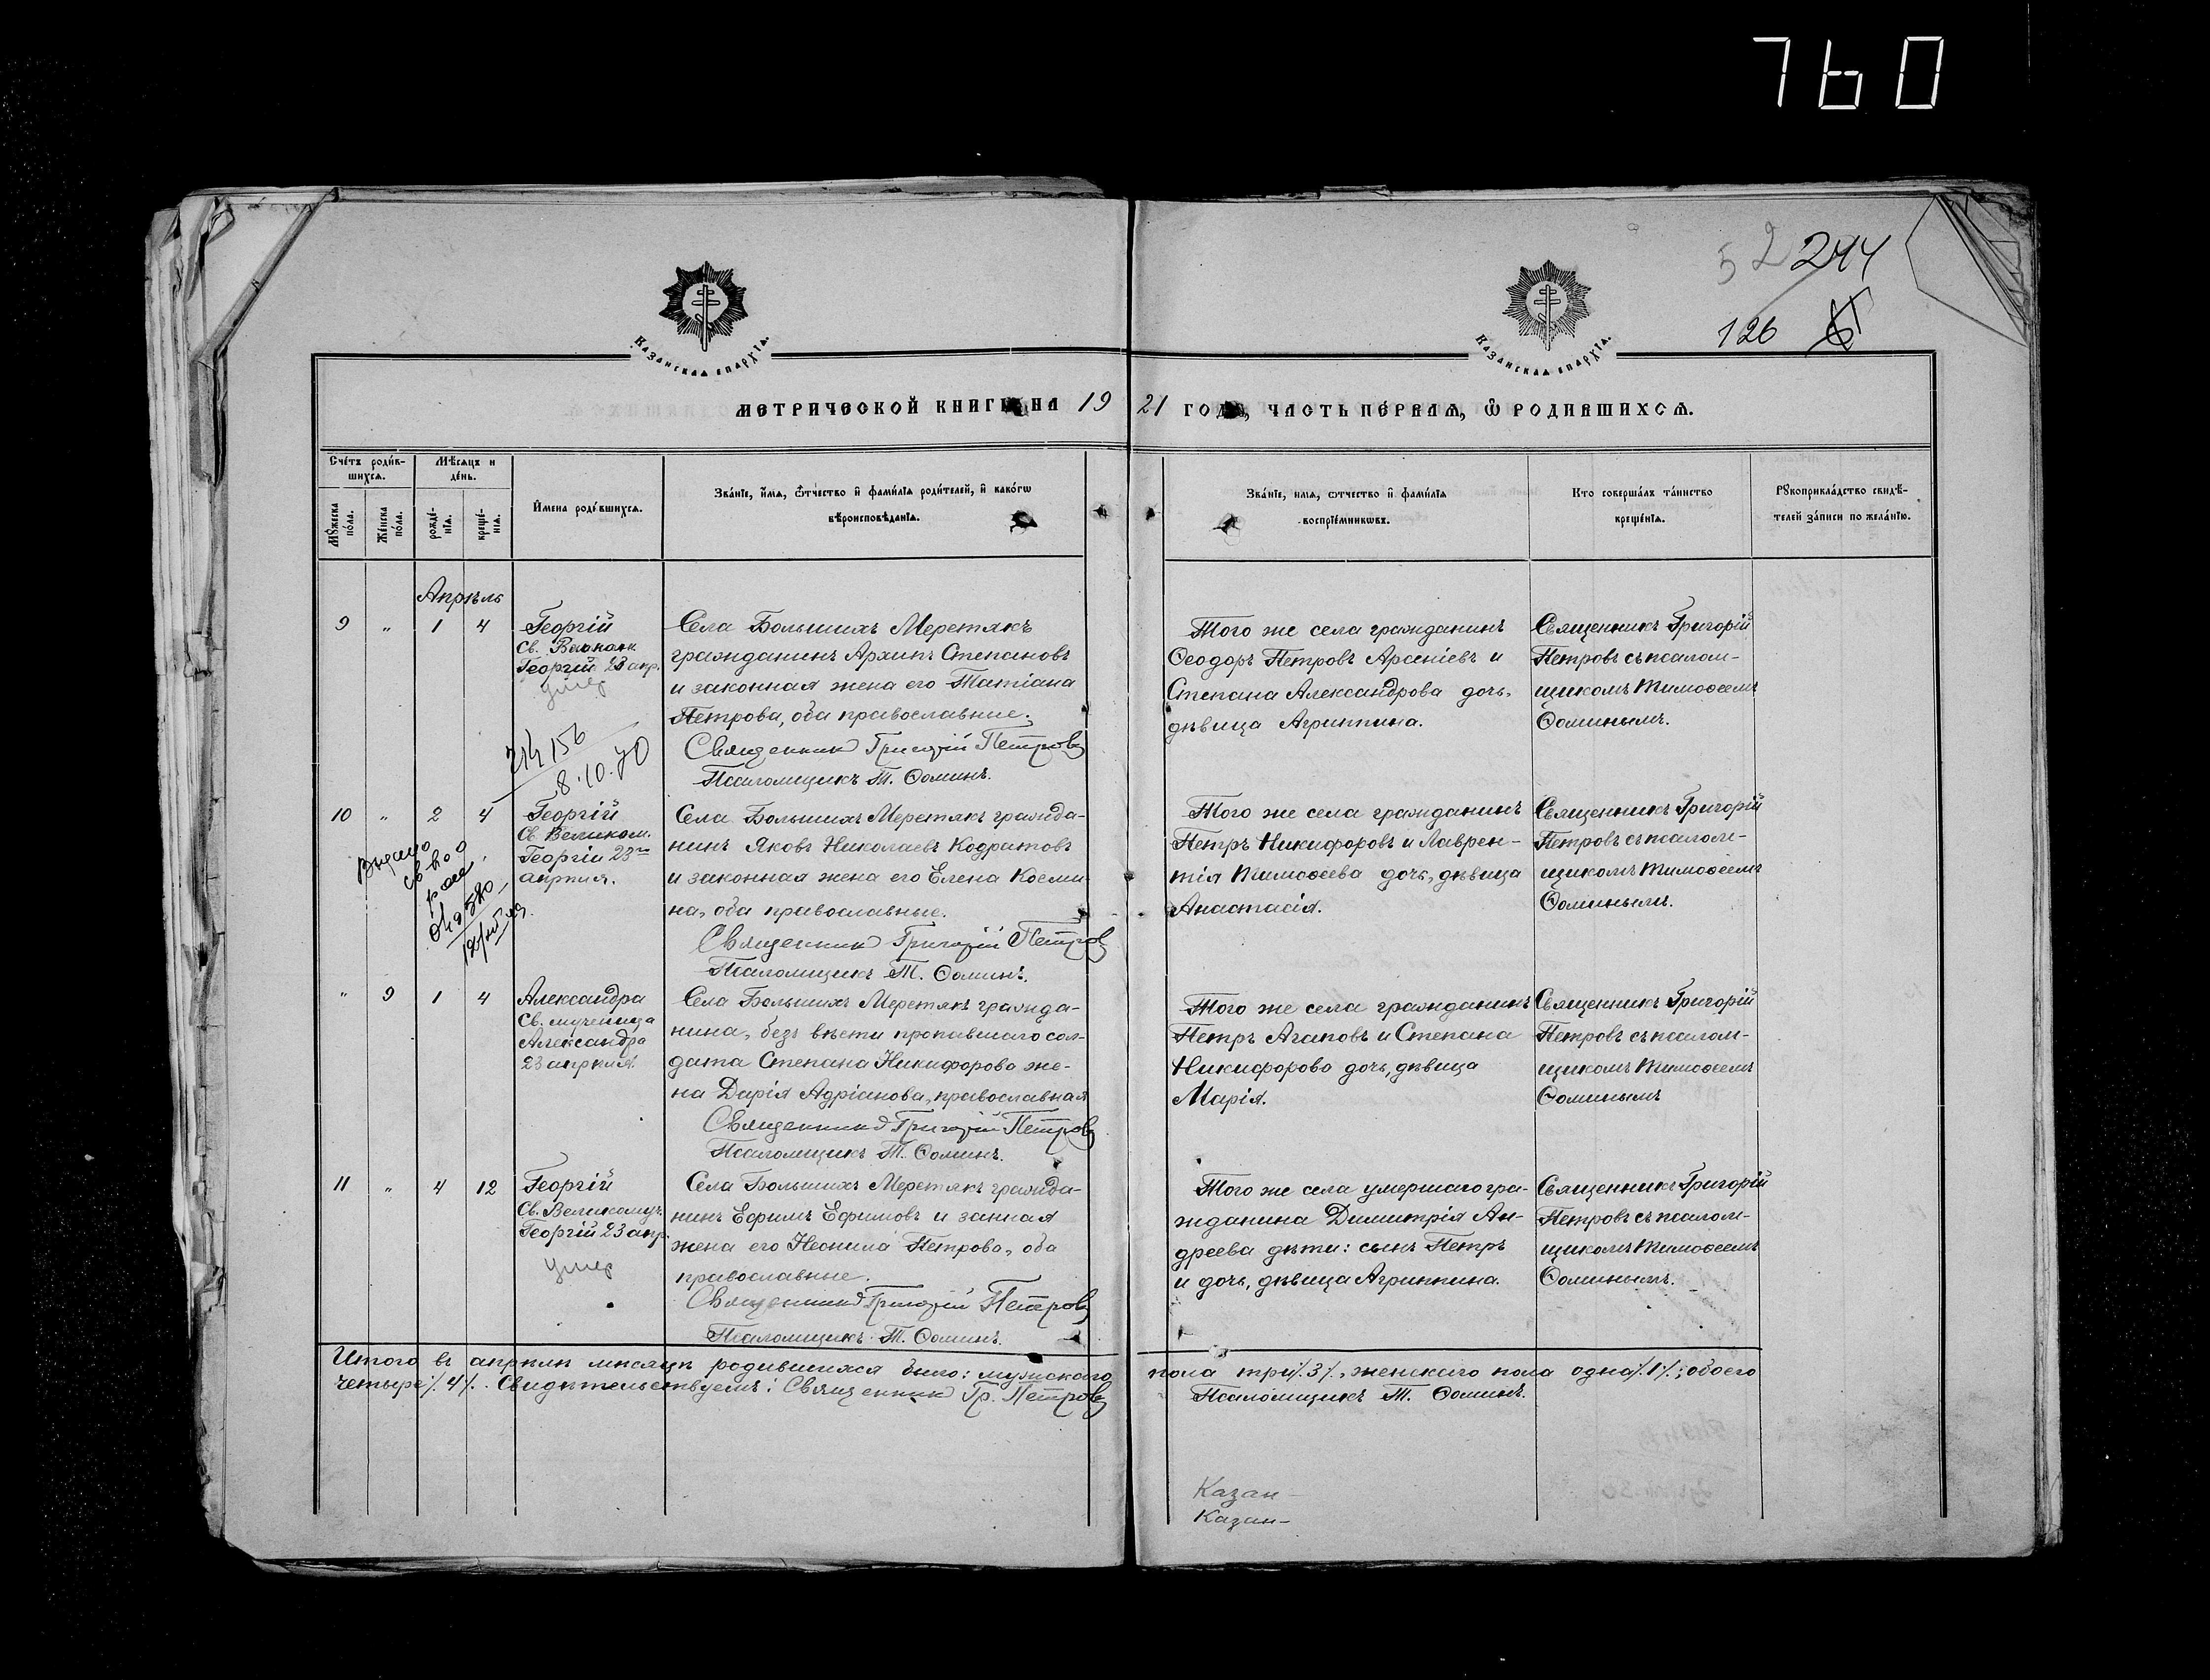 760
52 244
126
Казанская епархїа.
Казанская епархїа.
МЕТРИЧЕСКОЙ КНИГИ НА 1921 ГОДЪ, ЧАСТЬ ПЕРВАЯ, Ѽ РОДИВШИХСѦ.
Счетъ родив-
шихся.
Мꙋжеска пола.
Женска пола.
Мѣсяцъ и
день.
рожде-
нїѧ.
креще-
нїѧ.
Имена родившихся.
Званїе, имѧ, ѿтчество и фамилїѧ родителей, и какогѡ
вѣроисповѣданїѧ.
Званїе, имѧ, ѿтчество и фамилїѧ
воспрїемникѡвъ.
Кто совершалъ таинство
крещенїѧ.
Рꙋкоприкладство свидѣ-
телей записи по желанїю.
Апрѣль
9 " 1 4
Георгій
Св.
Георгій 23 апр.
умер
Села Большихъ Меретякъ
гражданинъ Архипъ Степановъ
и законная жена его Татіана
Петрова, оба православные.
Священникъ Григорій Петровъ
Псаломщикъ Т. Ѳоминъ.
Того же села гражданинъ
Ѳеодоръ Петровъ Арсеніевъ и
Степана Александрова дочь,
дѣвица Агриппина.
Священникъ Григорій
Петровъ съ псалом-
щикомъ Тимоѳеемъ
Ѳоминымъ.
214156
8.10.70
10 " 2 4
Георгій
Св. Великом.
Георгія 23го
апрѣля.
Выдано
Села Большихъ Меретякъ гражда-
нинъ Яковъ Николаевъ Кодратовъ
и законная жена его Елена Косми-
на, оба православные.
Священникъ Григорій Петровъ
Псаломщикъ Т. Ѳоминъ.
Того же села гражданинъ
Петръ Никифоровъ и Лаврен-
тія Тимоѳеева дочь, дѣвица
Анастасія.
Священникъ Григорій
Петровъ съ псалом-
щикомъ Тимоѳеемъ
Ѳоминымъ.
" 9 1 4
Александра
Св. мученица
Александра
23 апрѣля.
Села Большихъ Меретякъ гражда-
нина, безъ вѣсти пропавшаго сол-
дата Степана Никифорова же-
на Дарія Адріанова, православная
Священникъ Григорій Петровъ
Псаломщикъ Т. Ѳоминъ.
Того же села гражданинъ
Петръ Агаповъ и Степана
Никифорова дочь, дѣвица
Марія.
Священникъ Григорій
Петровъ съ псалом-
щикомъ Тимоѳеемъ
Ѳоминымъ
11 " 4 12
Георгій
Св. Великомуч.
Георгій 23 апр.
умер
Села Большихъ Меретякъ гражда-
нинъ Ефримъ Ефимовъ и занная
жена его Неонила Петрова, оба
православные.
Священникъ Григорій Петровъ
Псаломщикъ Т. Ѳоминъ.
Того же села умершаго гра-
жданина Димитрія Ан-
дреева дѣти: сынъ Петръ
и дочь, дѣвица Агриппина.
Священникъ Григорій
Петровъ съ псалом-
щикомъ Тимоѳеемъ
Ѳоминымъ.
Итого въ апрѣлѣ мѣсяцѣ родившихся было: мужского пола три /.3/., женскаго пола одна /.1/.; обоего
четыре /.4/.. Свидѣтельствуемъ: Священникъ Гр. Петровъ Псаломщикъ Т. Ѳоминъ.
Казан-
Казан-